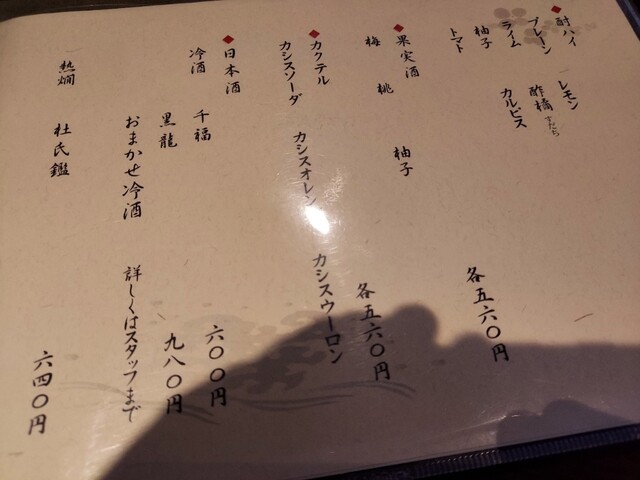 酎ハイ
プレーン レモン
ライム 酢橘 すだち
柚子 カルピス
トマト
各五六〇円
果実酒
梅 桃 柚子
各五六〇円
カクテル
カシスソーダ カシスオレンジ カシスウーロン
日本酒
冷酒 千福 六〇〇円
黒龍 九八〇円
おまかせ冷酒 詳しくはスタッフまで
熱燗 杜氏鑑 六四〇円